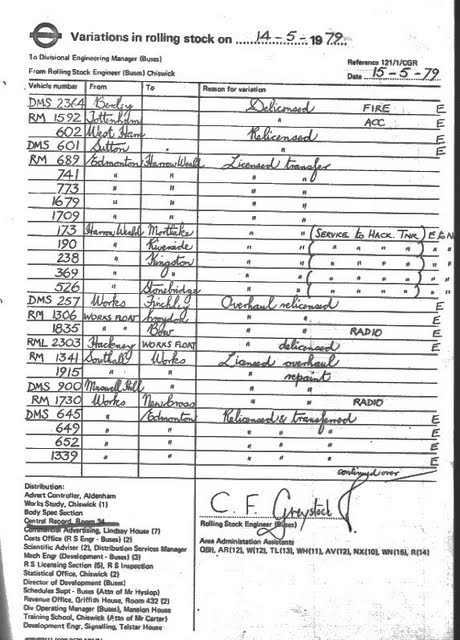 Variations in rolling stock on 14-5-1979.
To Divisional Engineering Manager (Buses)
From Rolling Stock Engineer (Buses) Chiswick
Reference 121/1/CGR
Date 15-5-79
Vehicle number From To Reason for variation
DMS 2364 Bexley Delicensed FIRE E
RM 1592 Tottenham " ACC E
602 West Ham Relicensed E
DMS 601 Sutton " E
RM 689 Edmonton Harrow Weald Licensed transfer
741 " " " "
773 " " " "
1679 " " " "
1709 " " " "
173 Harrow Weald Mortlake " " (SERVICE to HACK. TNR)
190 " Riverside " " ( " " " )
238 " Kingston " " ( " " " )
369 " " " " ( " " " )
526 " Stonebridge " " ( " " " )
DMS 257 Works Finchley Overhaul relicensed E
RM 1306 WORKS FLOAT Croydon " " E
1835 " Bow " " RADIO E
RML 2303 Hackney WORKS FLOAT " delicensed E
RM 1341 Southall Works Licensed overhaul
1915 " " " repaint
DMS 900 Muswell Hill " " "
RM 1730 Works New Cross " " RADIO
DMS 645 " Edmonton Relicensed & transferred E
649 " " " " " E
652 " " " " " E
1339 " " " " " E
continued over
Distribution:
Advert Controller, Aldenham
Works Study, Chiswick (1)
Body Spec Section
Central Record, Room 34
Commercial Advertising, Lindsay House (7)
Costs Office (R S Engr - Buses) (2)
Scientific Adviser (2), Distribution Services Manager
Mech Engr (Development - Buses) (3)
R S Licensing Section (5), R S Inspection
Statistical Office, Chiswick (2)
Director of Development (Buses)
Schedules Supt - Buses (Attn of Mr Hyslop)
Revenue Office, Griffith House, Room 432 (2)
Div Operating Manager (Buses), Mansion House
Training School, Chiswick (Attn of Mr Carter)
Development Engr, Signalling, Telstar House
C. F. Greystock
Rolling Stock Engineer (Buses)
Area Administation Assistants
Q(9), AR(12), W(12), TL(13), WH(11), AV(12), NX(10), WN(15), R(14)